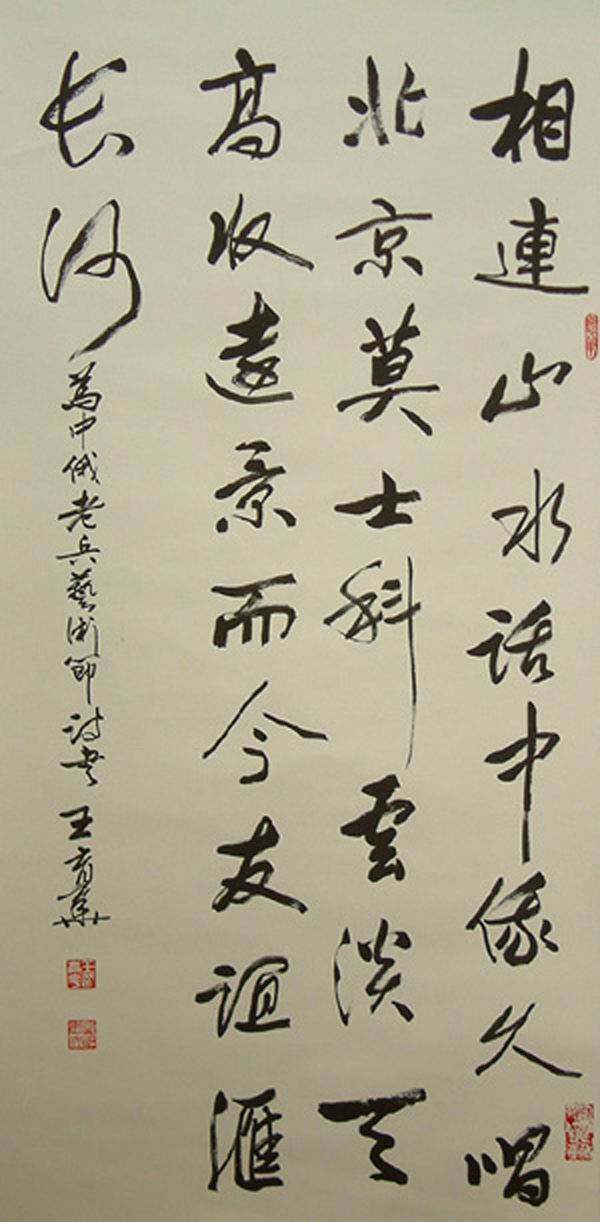 相連山水話中俄久唱
北京莫士科雲淡天
高收遠景而今友誼滙
长河
為中俄老兵藝術節詩書 王育華